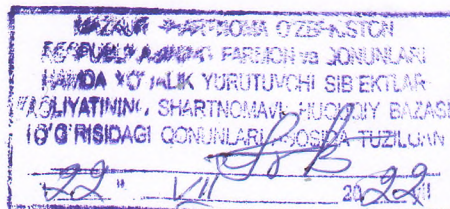 MAZKUR SHARTNOMA O'ZBEKISTON
RESPUBLIKASINING FARMON va QONUNLARI
HAMDA XO'JALIK YURUTUVCHI SUB'EKTLAR
FAOLIYATINING SHARTNOMAVIY-HUQUQIY BAZASI
TO'G'RISIDAGI QONUNLARI ASOSIDA TUZILGAN
22 " VII 2022